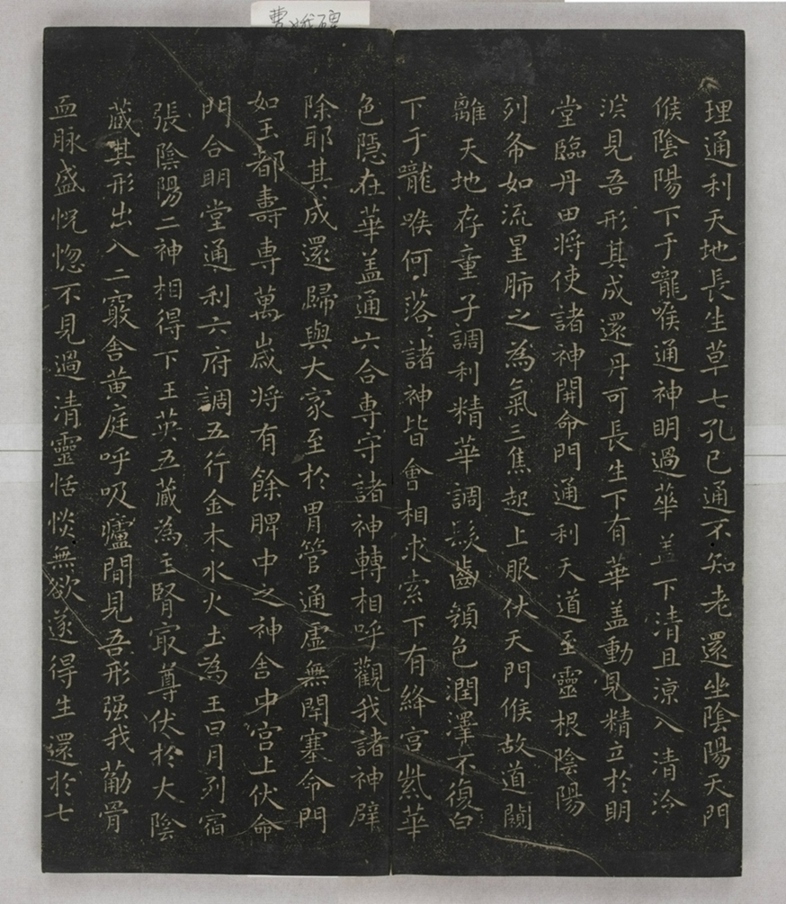 曹娥碑
理通利天地長生草七孔已通不知老還坐陰陽天門
候陰陽下于嚨喉通神明過華蓋下清且涼入清泠
淵見吾形其成還丹可長生下有華蓋動見精立於明
堂臨丹田將使諸神開命門通利天道至靈根陰陽
列布如流星肺之為氣三焦起上服伏天門候故道闚
離天地存童子調利精華調髮齒顏色潤澤不復白
下于嚨喉何落〻諸神皆會相求索下有絳宮紫華
色隱在華盖通六合專守諸神轉相呼觀我諸神辟
除耶其成還歸與大家至於胃管通虛無閉塞命門
如玉都壽專萬歲將有餘脾中之神舍中宮上伏命
門合明堂通利六府調五行金木水火土為王日月列宿
張陰陽二神相得下玉英五藏為主腎最尊伏於大陰
藏其形出入二竅舍黃庭呼吸爐間見吾形强我筋骨
血脉盛怳惚不見過清靈恬惔無欲遂得生還於七